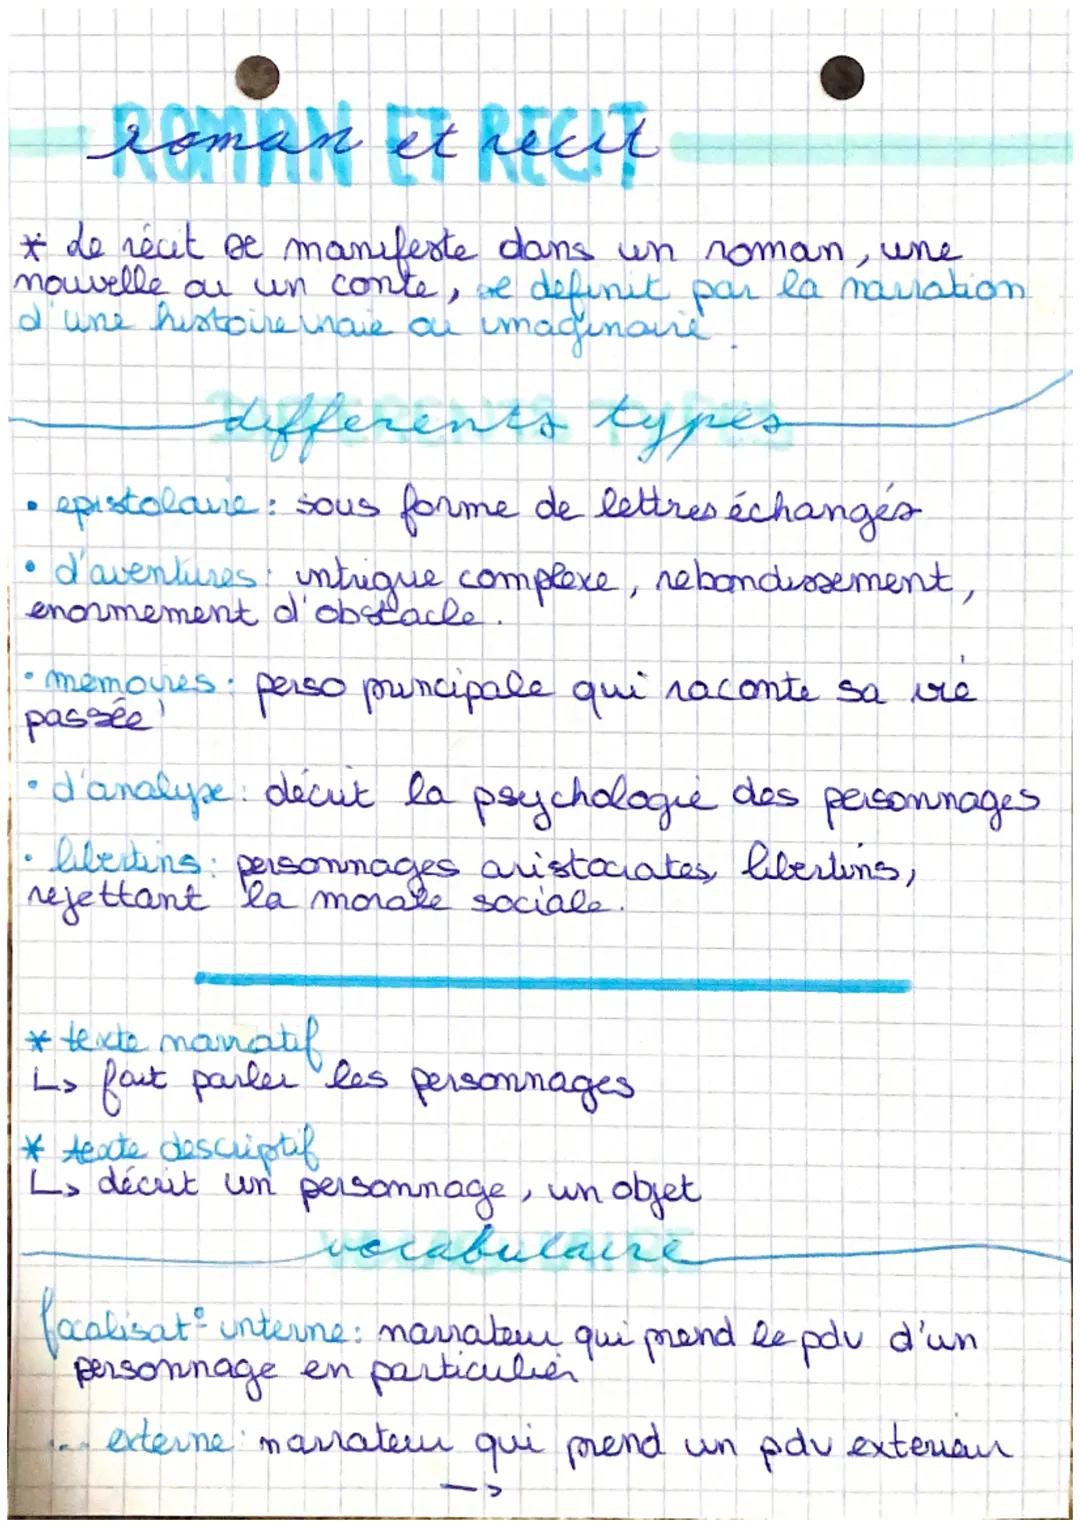 ROMAN ET RECIT
roman et recit
* Le récit se manifeste dans un roman, une
nouvelle ou un conte, se definit par la narration
d'une histoire vraie ou imaginaire.
DIFFERENTS TYPES
differents types
• epistolaire : sous forme de lettres échangés
• d'aventures : intrigue complexe, rebondissement,
enormement d'obstacle.
• memoires : perso principale qui raconte sa vie
passée
• d'analyse : décrit la psychologie des personnages
• libertins : personnages aristocrates, libertins,
rejettant la morale sociale.
* texte narratif
↳ fait parler les personnages
* texte descriptif
↳ décrit un personnage, un objet
VOCABULAIRE
vocabulaire
focalisat° interne : narrateur qui prend le pdv d'un
personnage en particulier
... externe : narrateur qui prend un pdv exterieur
->